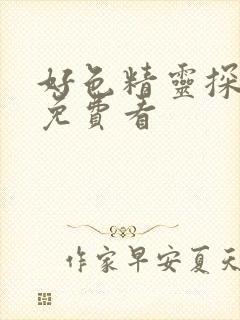 好色精靈探
免費看
作家早安夏天